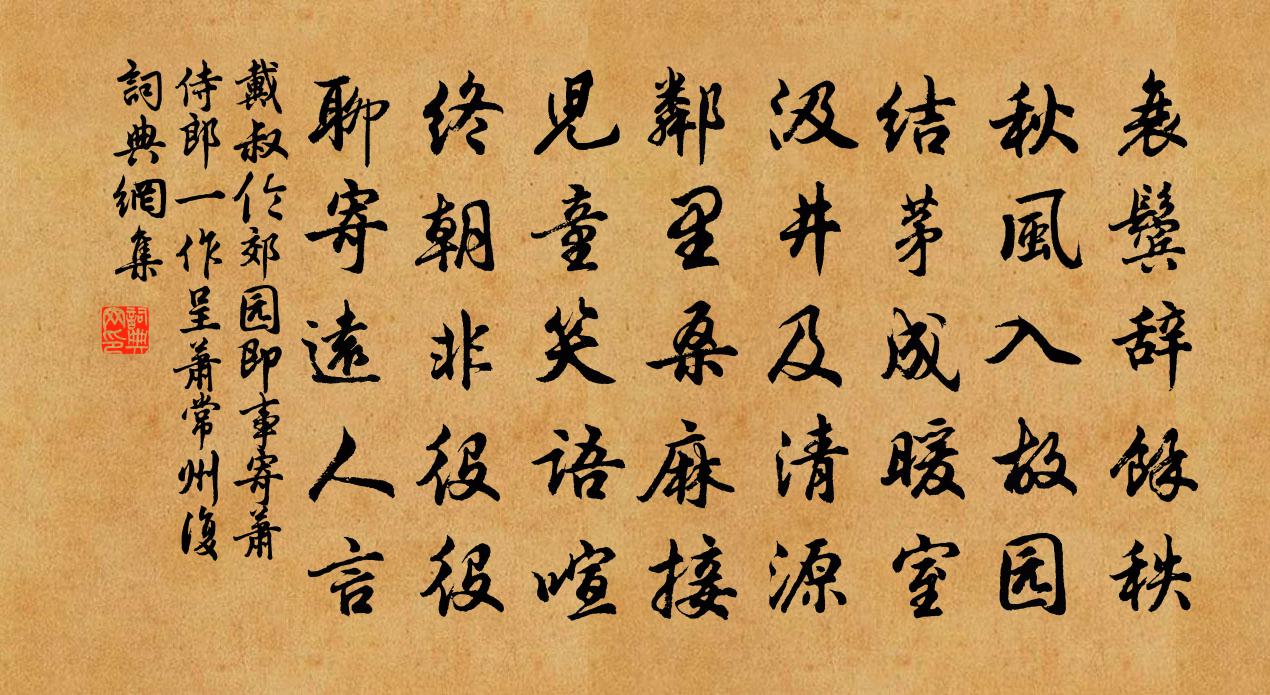 衰鬓辞餘秩
秋風入故园
结茅成暖室
汲井及清源
鄰里桑麻接
児童笑语喧
终朝非役役
聊寄遠人言
戴叔伦郊园即事寄萧
侍郎一作呈萧常州復
詞典網集
詞典网印